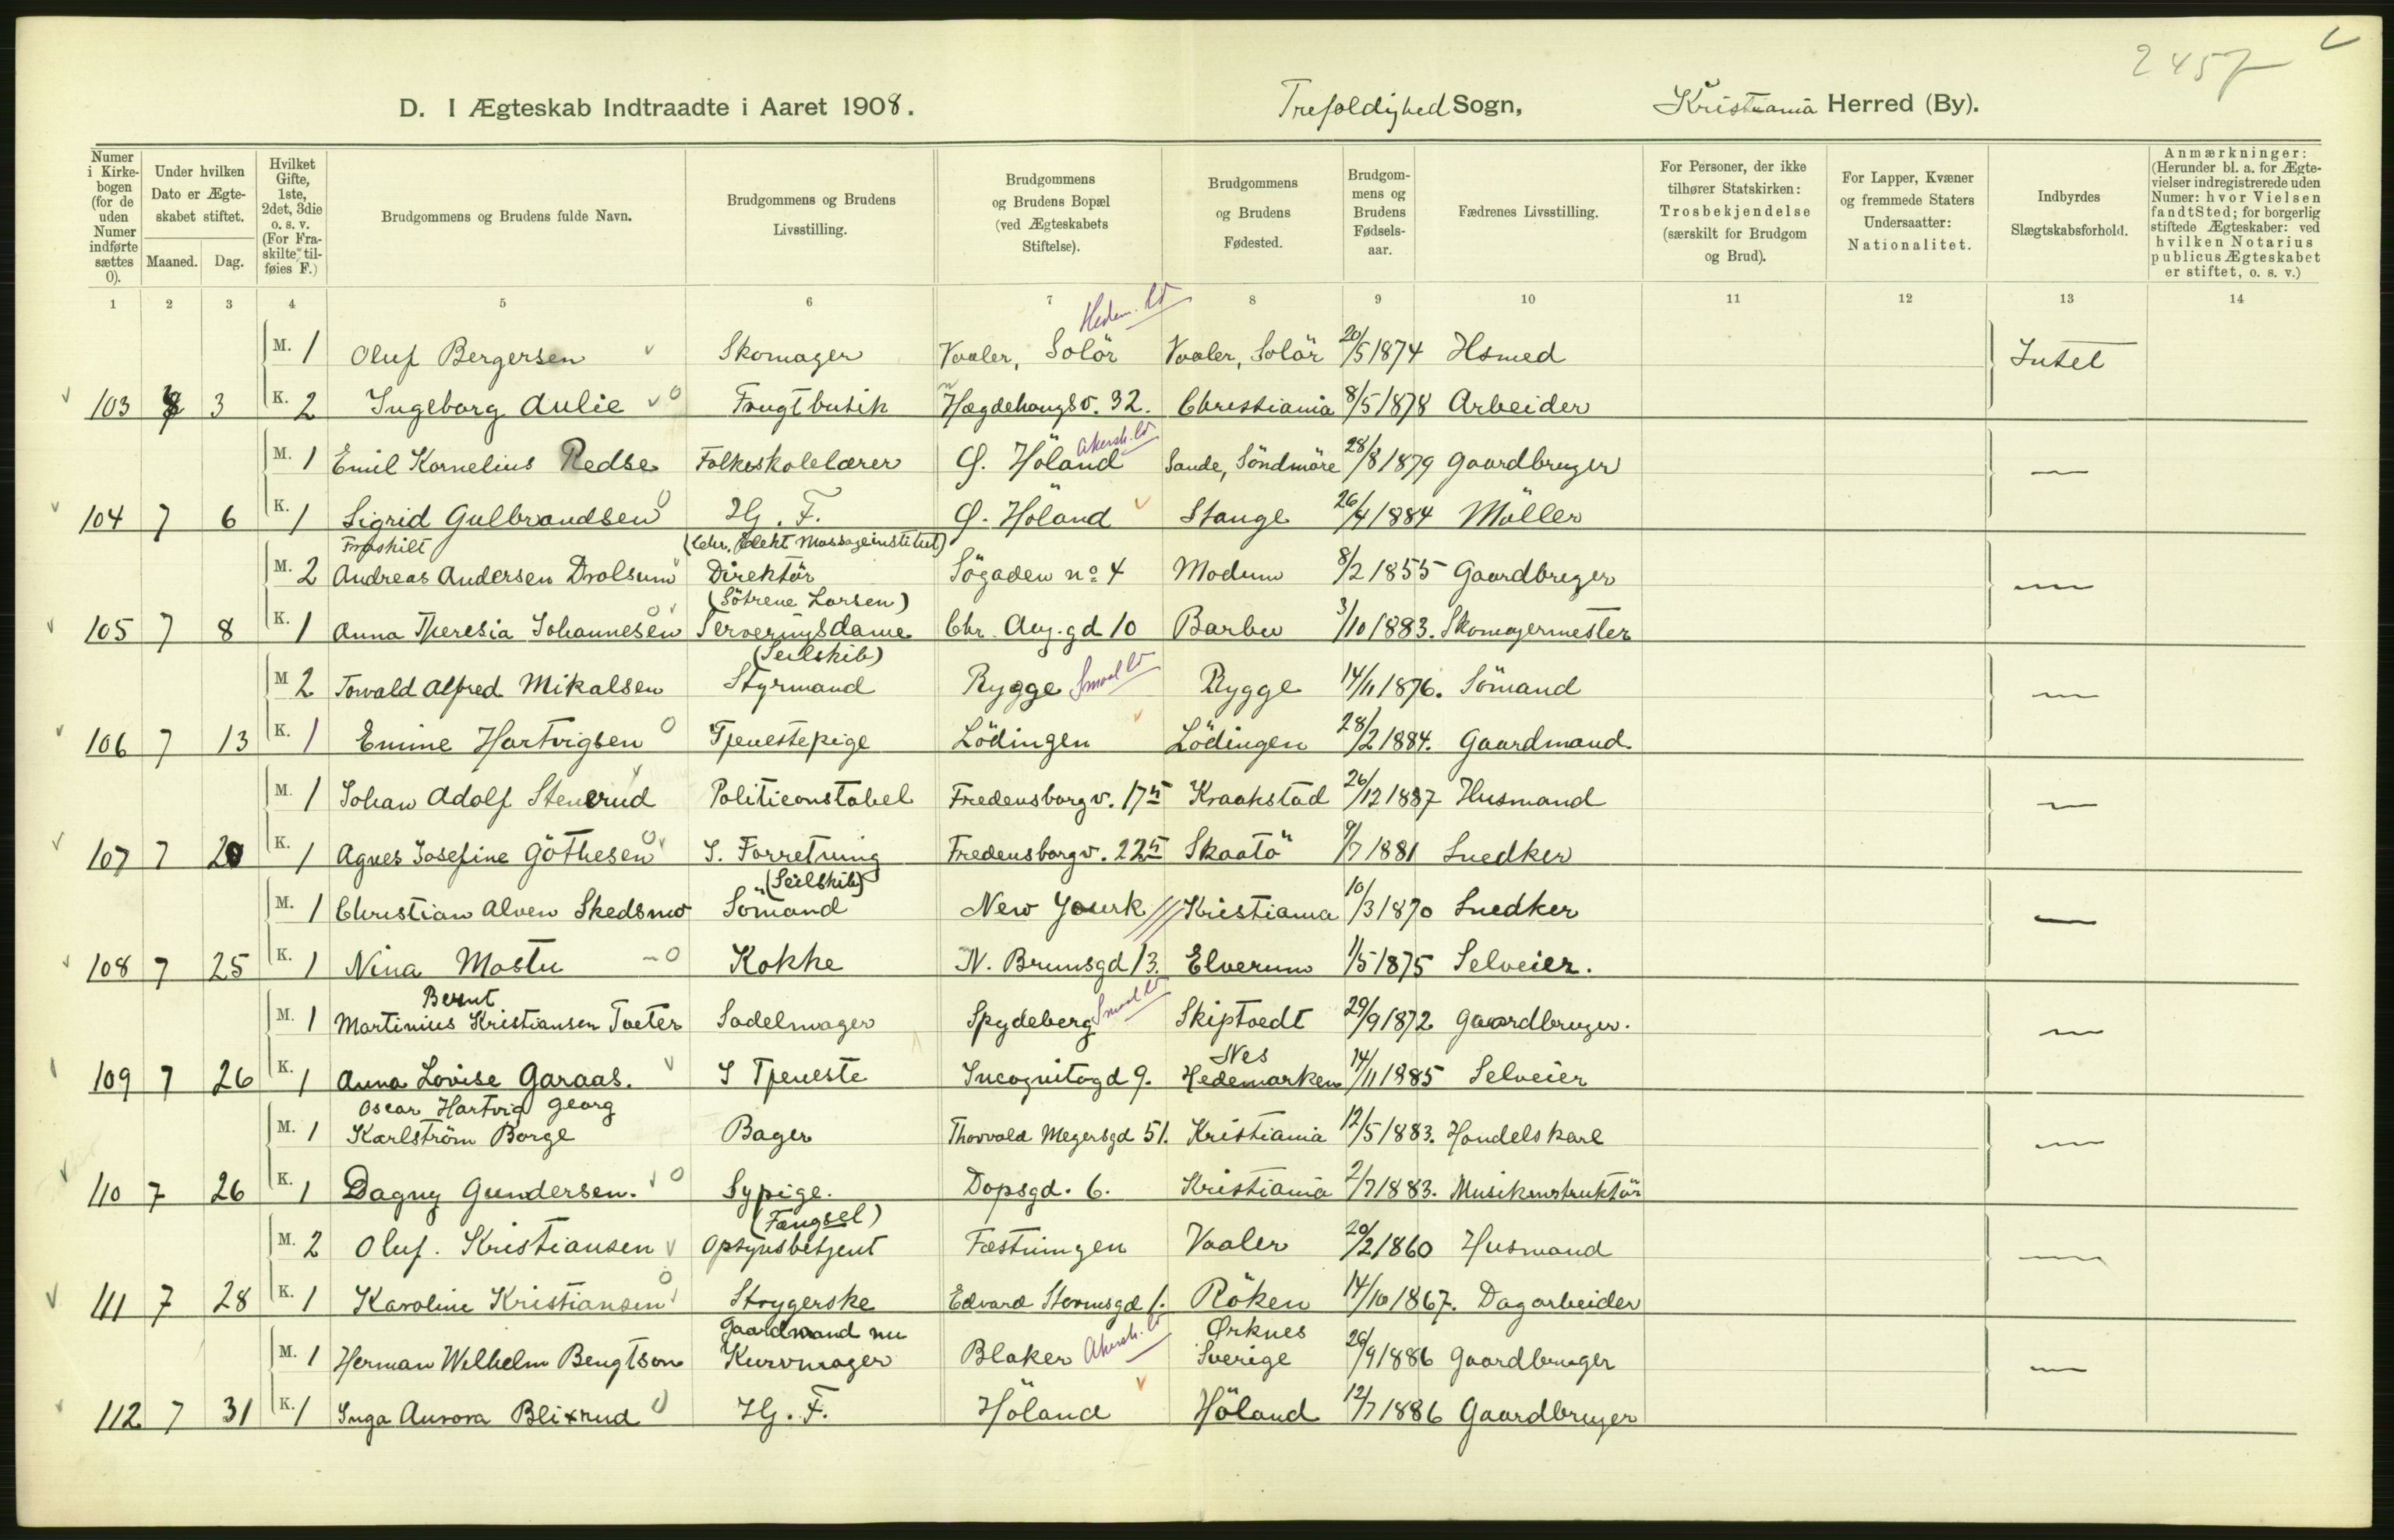 2457
D. I Ægteskab Indtraadte i Aaret 1908. Trefoldighed Sogn, Kristiania Herred (By).
Numer i Kirkebogen (for de uden Numer indførte sættes 0). Under hvilken Dato er Ægteskabet stiftet. Maaned. Dag. Hvilket Gifte, 1ste, 2det, 3die o. s. v. (For Fraskilte tilføies F.) Brudgommens og Brudens fulde Navn. Brudgommens og Brudens Livsstilling. Brudgommens og Brudens Bopæl (ved Ægteskabets Stiftelse). Brudgommens og Brudens Fødested. Brudgommens og Brudens Fødselsaar. Fædrenes Livsstilling. For Personer, der ikke tilhører Statskirken: Trosbekjendelse (særskilt for Brudgom og Brud). For Lapper, Kvæner og fremmede Staters Undersaatter: Nationalitet. Indbyrdes Slægtskabsforhold. Anmærkninger: (Herunder bl. a. for Ægtevielser indregistrerede uden Numer: hvor Vielsen fandt Sted; for borgerlig stiftede Ægteskaber: ved hvilken Notarius publicus Ægteskabet er stiftet, o. s. v.)
1 2 3 4 5 6 7 8 9 10 11 12 13 14
Hedem.
M. 1 Oluf Bergersen Skomager Vaaler, Solör Vaaler, Solör 20/5 1874 Hsmed Intet
103 3 K. 2 Ingeborg Aulie Frugtbutik Hægdehaugsv. 32. Christiania 8/5 1878 Arbeider
Akersh.
M. 1 Emil Kornelius Redse Folkeskolelærer Ø. Höland Sande, Söndmöre 28/8 1879 Gaardbruger —
104 7 6 K. 1 Sigrid Gulbrandsen Hj. F. Ø. Höland Stange 26/4 1884 Möller
Fraskilt (Chr. Elekt Massageinstitut)
M. 2 Andreas Andersen Drolsum Direktör Sögaden no 4 Modum 8/2 1855 Gaardbruger —
(Söstrene Larsen)
105 7 8 K. 1 Anna Theresia Johannesen Serveringsdame Chr. Aug. gd 10 Barbu 3/10 1883. Skomagermester
(Seilskib)
M 2 Torvald Alfred Mikalsen Styrmand Rygge Smaal Rygge 14/11 1876. Sömand —
106 7 13 K. 1 Emine Hartvigsen Tjenestepige Lödingen Lödingen 28/2 1884. Gaardmand.
M. 1 Johan Adolf Stenerud Politiconstabel Fredensborgv. 17 Kraakstad 26/12 1887 Husmand —
107 7 20 K. 1 Agnes Josefine Göthesen I. Forretning Fredensborgv. 22 Skaatö 9/7 1881 Snedker
(Seilskib)
M. 1 Christian Alven Skedsmo Sömand New Yourk Kristiania 10/3 1870 Snedker —
108 7 25 K. 1 Nina Mostu Kokke N. Brunsgd 13. Elverum 1/5 1875 Selveier.
Bernt Smaal
M. 1 Martinius Kristiansen Tveter Sadelmager Spydeberg Skiptvedt 29/9 1872 Gaardbruger. —
Nes
109 7 26 K. 1 Anna Lovise Garaas. I Tjeneste Incognitogd 9. Hedemarken 14/11 1885 Selveier
Oscar Hartvig Georg
M. 1 Karlström Borge Bager Thorvald Megersgd 51. Kristiania 12/5 1883. Handelskarl —
110 7 26 K. 1 Dagny Gundersen. Sypige. Dopsgd. 6. Kristiania 2/7 1883. Musikinstruktör
(Fængsel)
M. 2 Oluf. Kristiansen Opsynsbetjent Fæstningen Vaaler 20/2 1860 Husmand —
111 7 28 K. 1 Karoline Kristiansen Strygerske Edvard Stormsgd 1. Röken 14/10 1867. Dagarbeider
Gaardmand nu Ørknes
M. 1 Herman Wilhelm Bengtson Kurvmager Blaker Akersh. Sverige 26/9 1886 Gaardbruger —
112 7 31 K. 1 Inga Aurora Blixrud Hj. F. Höland Höland 12/7 1886 Gaardbruger